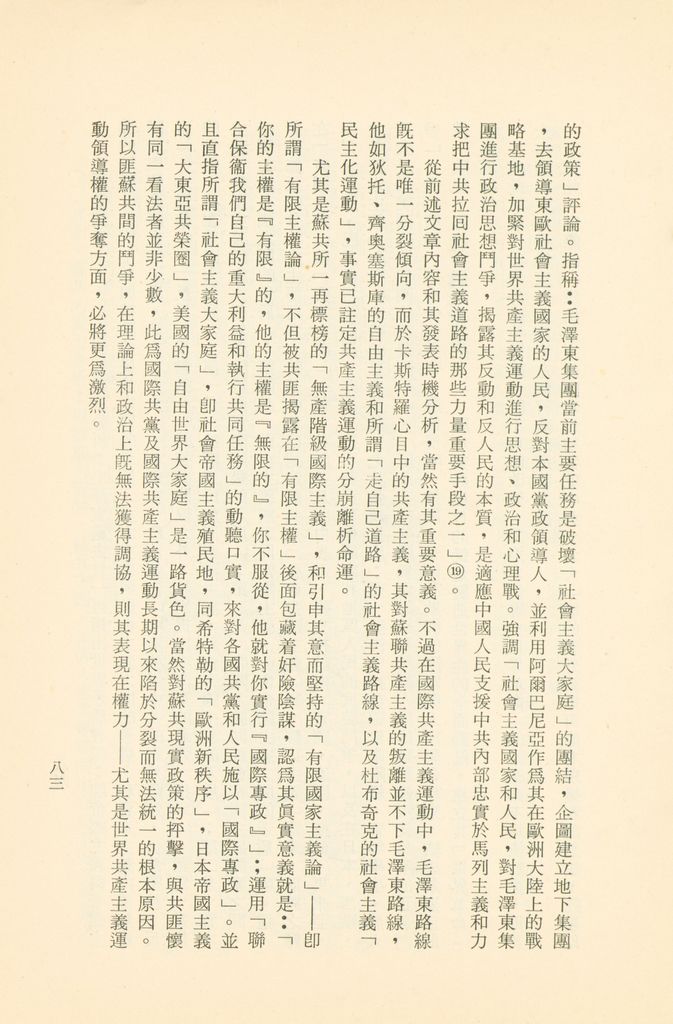 的政策」評論。指稱：毛澤東集團當前主要任務是破壞「社會主義大家庭」的團結，企圖建立地下集團
，去領導東歐社會主義國家的人民，反對本國黨政領導人，並利用阿爾巴尼亞作爲其在歐洲大陸上的戰
略基地，加緊對世界共產主義運動進行思想、政治和心理戰。強調「社會主義國家和人民，對毛澤東集
團進行政治思想鬥爭，揭露其反動和反人民的本質，是適應中國人民支援中共內部忠實於馬列主義和力
求把中共拉回社會主義道路的那些力量重要手段之一」⑲。
從前述文章內容和其發表時機分析，當然有其重要意義。不過在國際共產主義運動中，毛澤東路線
旣不是唯一分裂傾向，而於卡斯特羅心目中的共產主義，其對蘇聯共產主義的叛離並不下毛澤東路線，
他如狄托、齊奧塞斯庫的自由主義和所謂「走自己道路」的社會主義路線，以及杜布奇克的社會主義「
民主化運動」，事實已註定共產主義運動的分崩離析命運。
尤其是蘇共所一再標榜的「無產階級國際主義」，和引申其意而堅持的「有限國家主義論」——卽
所謂「有限主權論」，不但被共匪揭露在「有限主權」後面包藏着奸險陰謀，認爲其眞實意義就是：「
你的主權是『有限』的，他的主權是『無限的』，你不服從，他就對你實行『國際專政』」；運用「聯
合保衞我們自己的重大利益和執行共同任務」的動聽口實，來對各國共黨和人民施以「國際專政」。並
且直指所謂「社會主義大家庭」，卽社會帝國主義殖民地，同希特勒的「歐洲新秩序」，日本帝國主義
的「大東亞共榮圈」，美國的「自由世界大家庭」是一路貨色。當然對蘇共現實政策的抨擊，與共匪懷
有同一看法者並非少數，此爲國際共黨及國際共產主義運動長期以來陷於分裂而無法統一的根本原因。
所以匪蘇共間的鬥爭，在理論上和政治上旣無法獲得調協，則其表現在權力——尤其是世界共產主義運
動領導權的爭奪方面，必將更爲激烈。
八三